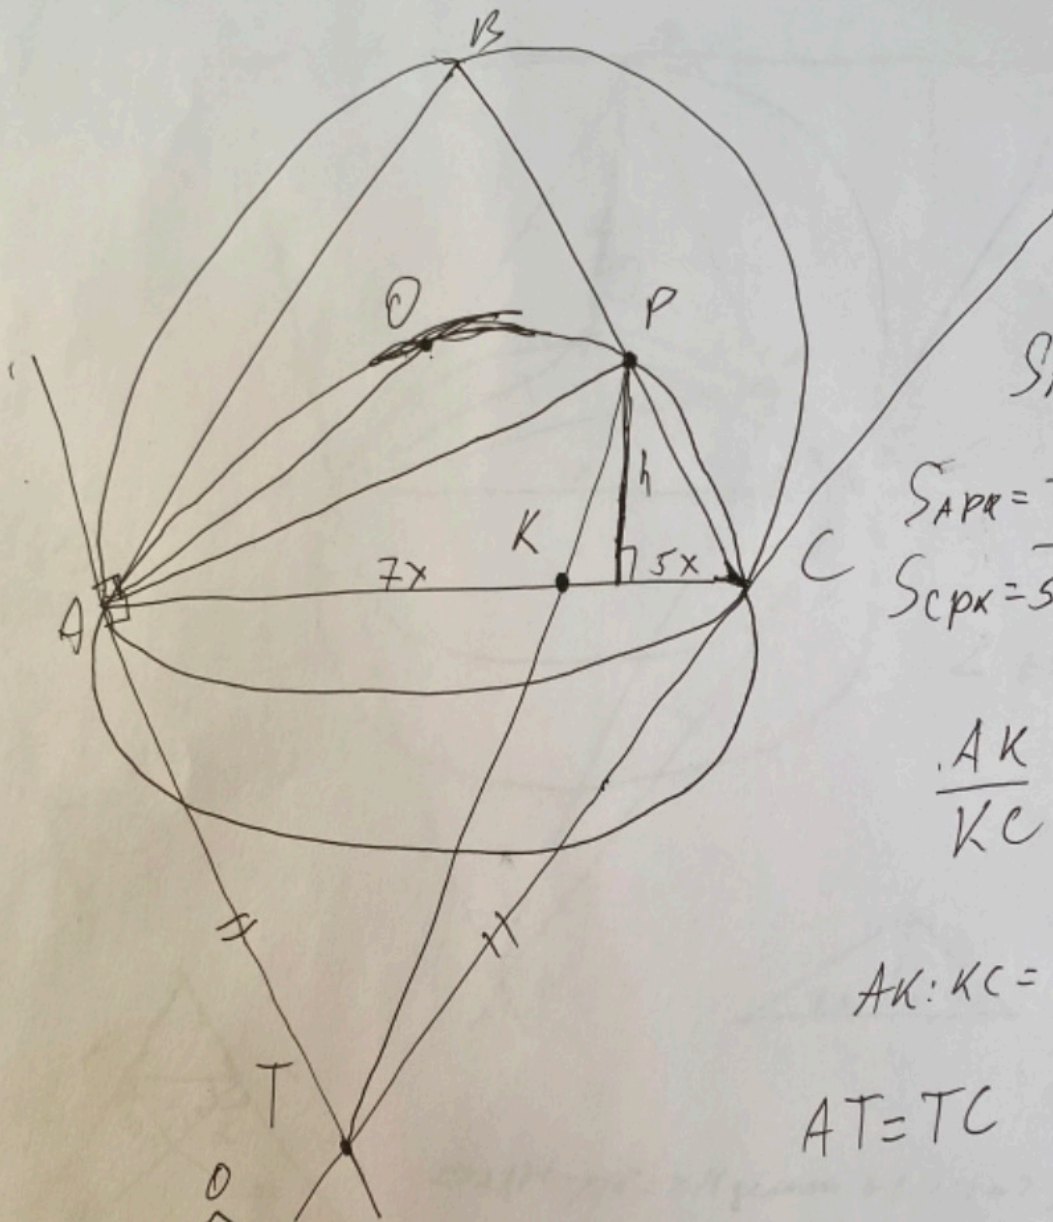 B
O
P
h
K
7x
5x
C
A
S
S_APK = 7
S_CPK = 5
AK
KC
AK:KC=
T
AT=TC
O